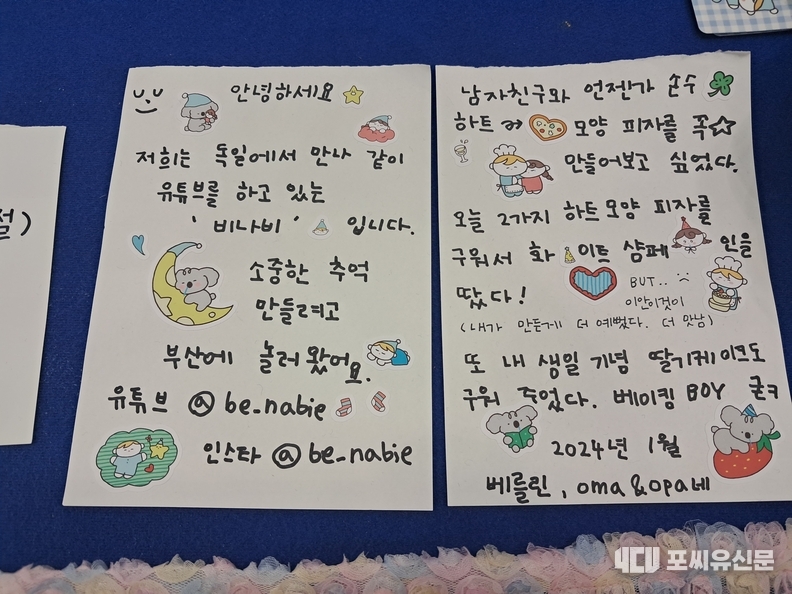 절)
안녕하세요
저희는 독일에서 만나 같이
유튜브를 하고 있는
'비나비' 입니다.
소중한 추억
만들려고
부산에 놀러 왔어요.
유튜브 @be_nabie
인스타 @be_nabie
남자친구와 언젠가 손수
하트 모양 피자를 꼭☆
만들어보고 싶었다.
오늘 2가지 하트모양 피자를
구워서 화이트 샴페인을
땄다!
BUT.. 이안이것이
(내가 만든게 더 예뻤다. 더 맛남)
또 내 생일 기념 딸기케이크도
구워 주었다. 베이킹 BOY 굳ㅋ
2024년 1월
베를린, oma&opa네
포씨유신문